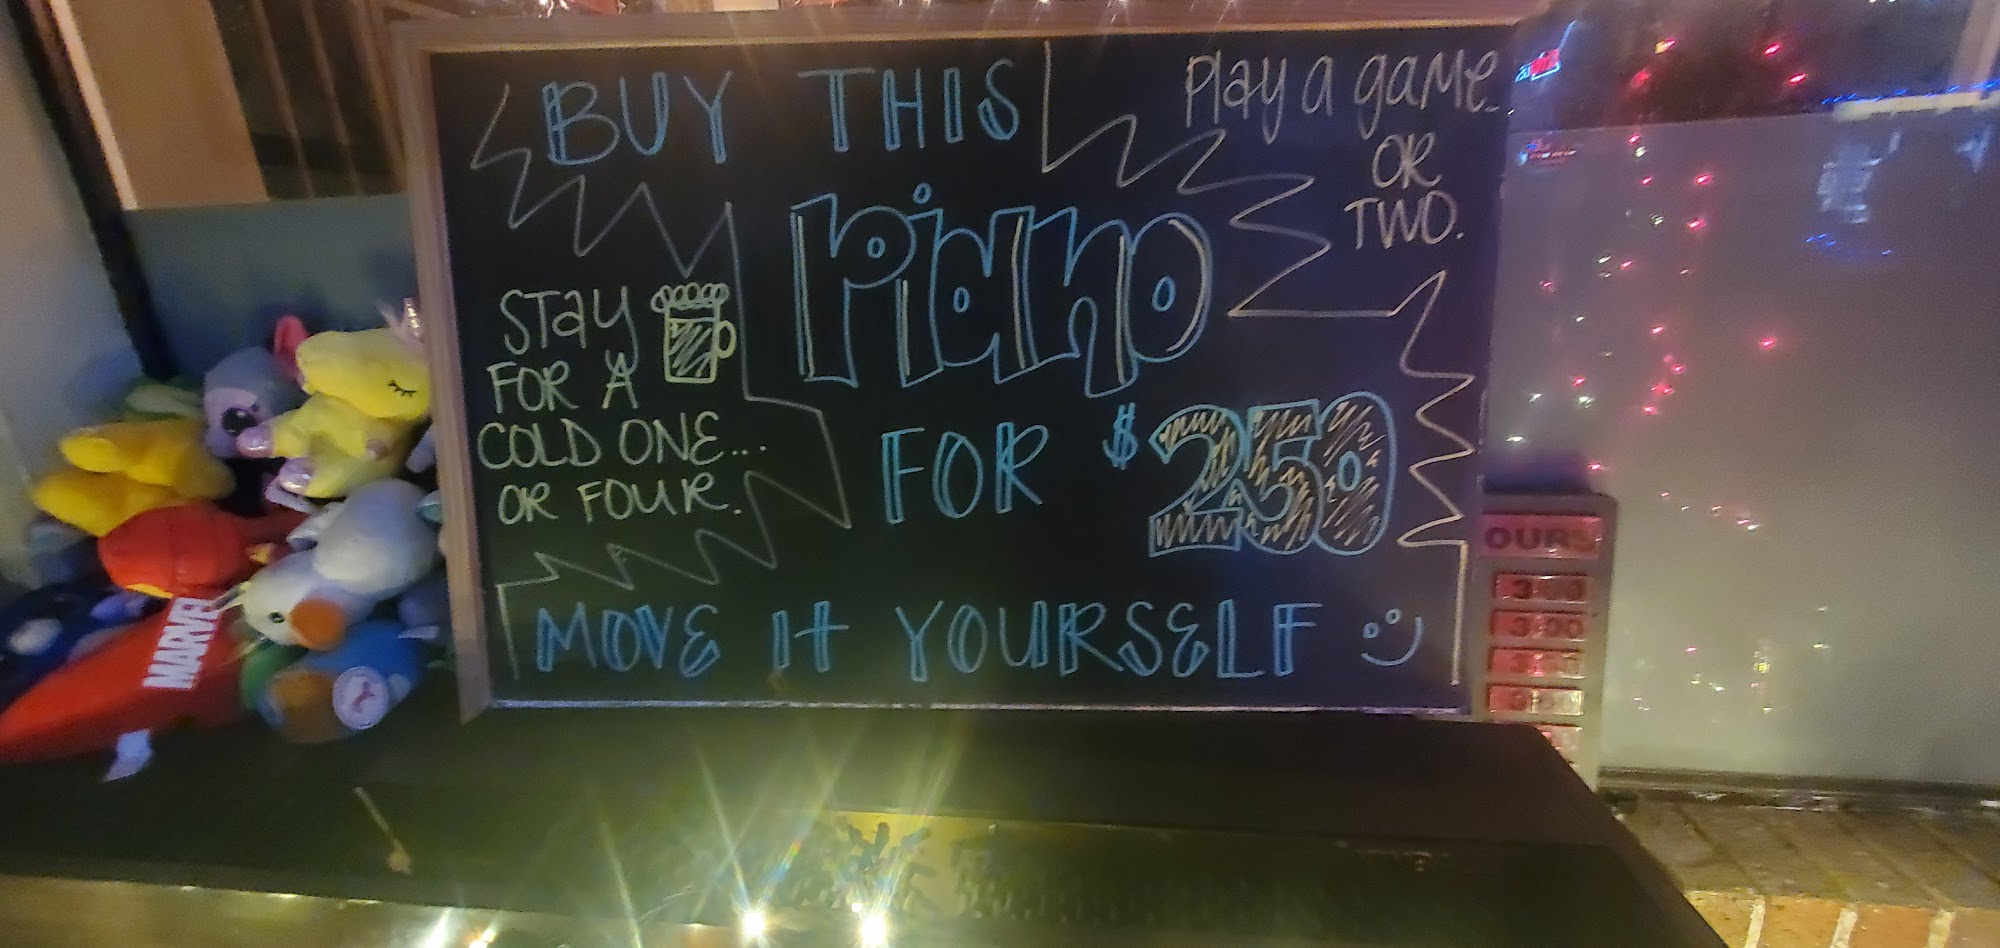 BUY THIS
Piano
FOR $250
MOVE IT YOURSELF
Play a game..
OR
TWO.
Stay
FOR A
COLD ONE...
OR FOUR.
MARVEL
OURS
3:00
3:00